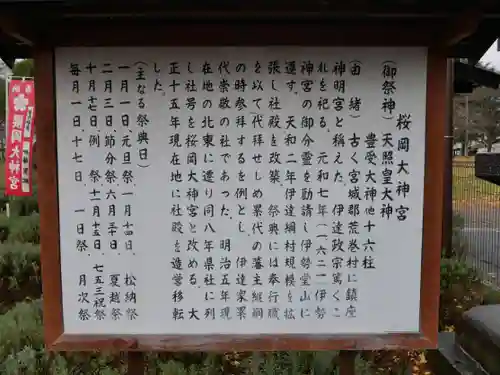 桜岡大神宮
(御祭神)天照皇大神
豊受大神他十六柱
(由緒)古く宮城郡荒巻村に鎮座
神明宮と称えた。伊達政宗篤くこ
れを祀る。元和七年(一六二一)伊勢
神宮の御分霊を勧請し伊勢堂山に
遷す。天和二年伊達綱村規模を拡
張し社殿を改築。祭典には奉行職
を以て代拝せしめ累代の藩主継嗣
の時参拝するを例とし、伊達家累
代崇敬の社であった。明治五年現
在地の北東に遷り同八年県社に列
し社号を桜岡大神宮と改める。大
正十五年現在地に社殿を造営移転
した。
(主なる祭典日)
一月一日、元旦祭 一月十四日、松納祭
二月三日、節分祭 六月三十日 夏越祭
十月十七日、例祭 十一月十五日、七五三祝祭
毎月一日、十七日 一日祭、月次祭
櫻岡大神宮